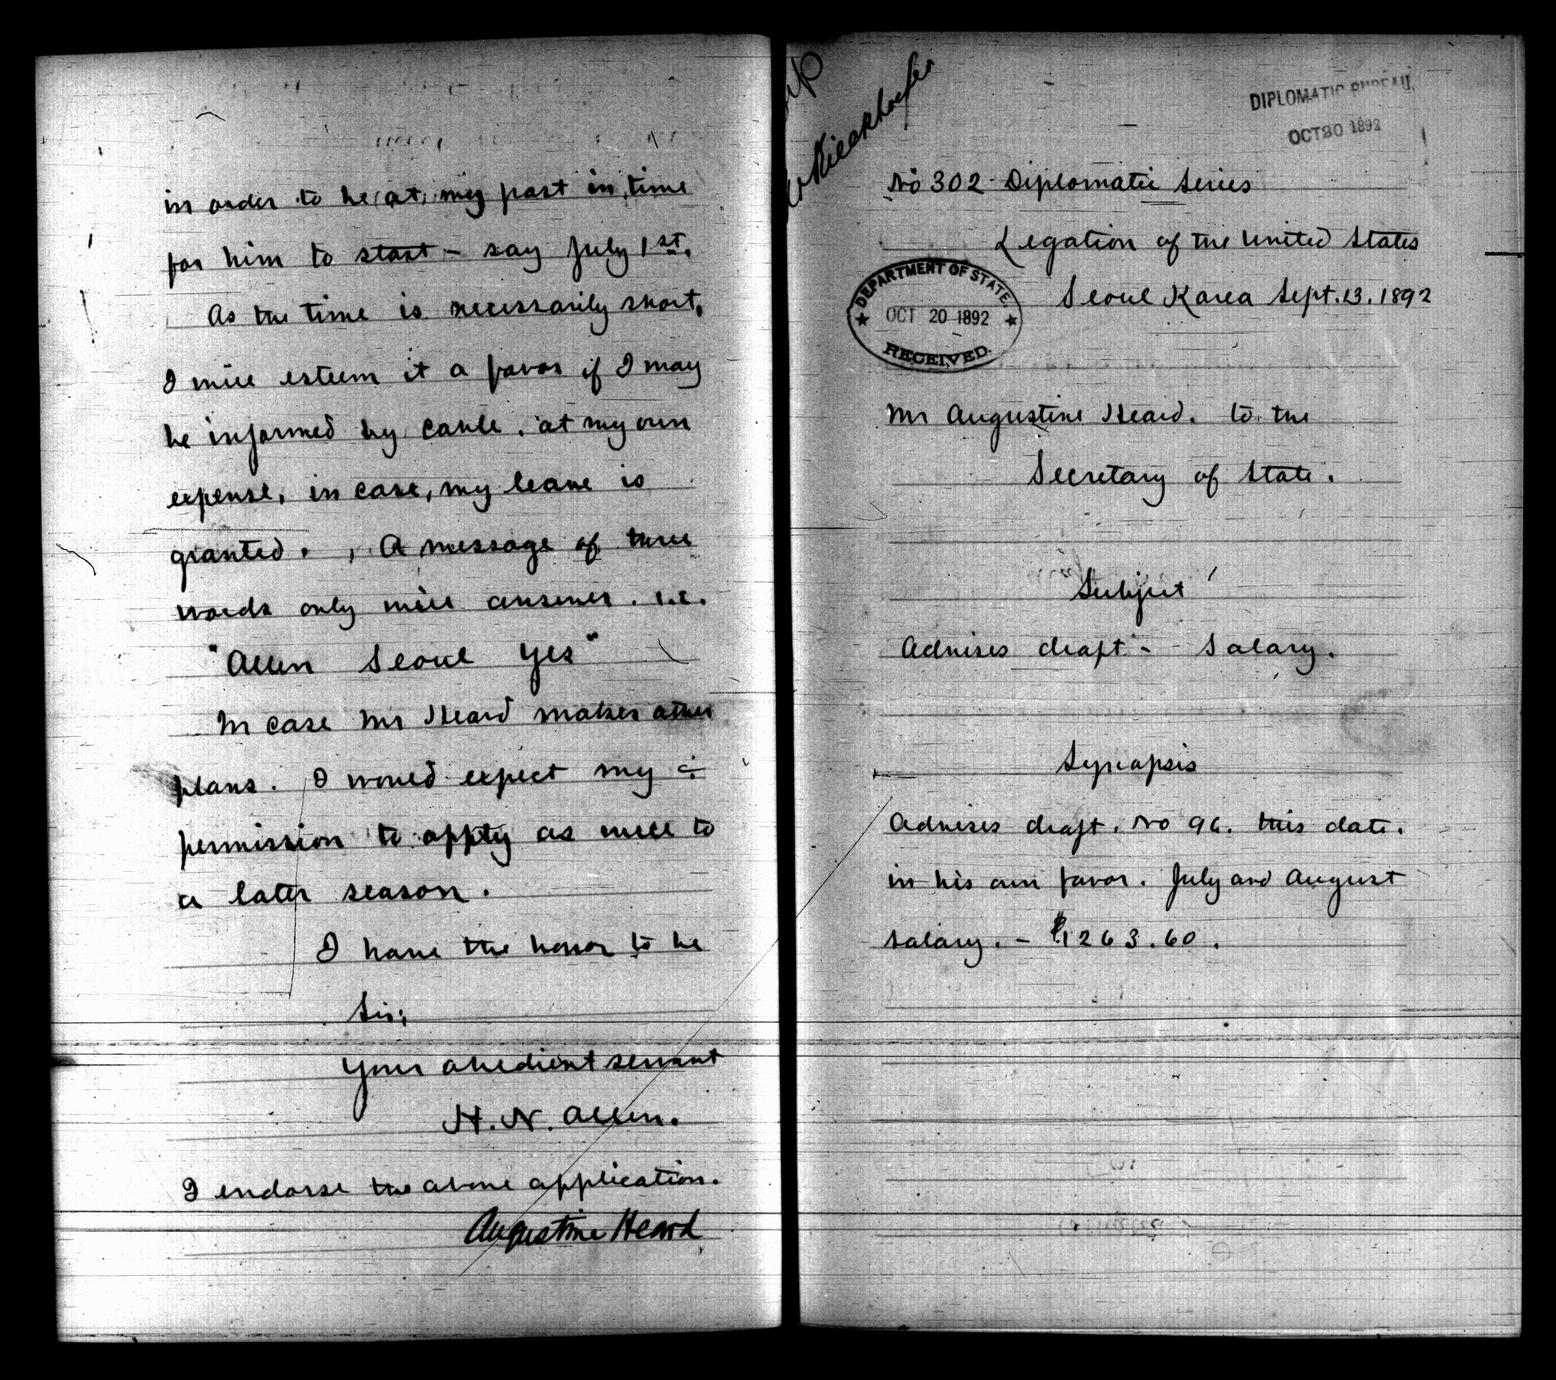 in order to be at my post in time
for him to start – say July 1st.
As the time is necessarily short,
I will esteem it a favor if I may
be informed by cable, at my own
expense, in case, my leave is
granted. A message of three
words only will answer. i.e.
"Allen Seoul Yes"
In case Mr Heard makes other
plans. I would expect my
permission to apply as well to
a later season.
I have the honor to be
Sir;
Your obedient servant
H. N. Allen.
I endorse the above application.
Augustine Heard
DIPLOMATIC BUREAU,
OCT 20 1892
No 302 Diplomatic Series
Legation of the United States
Seoul Korea Sept. 13. 1892
DEPARTMENT OF STATE
OCT 20 1892
RECEIVED.
Mr Augustine Heard. to the
Secretary of State.
Subject
Advises draft – Salary.
Synopsis
Advises draft. No 96. this date.
in his own favor. July and August
salary. – $1263.60.